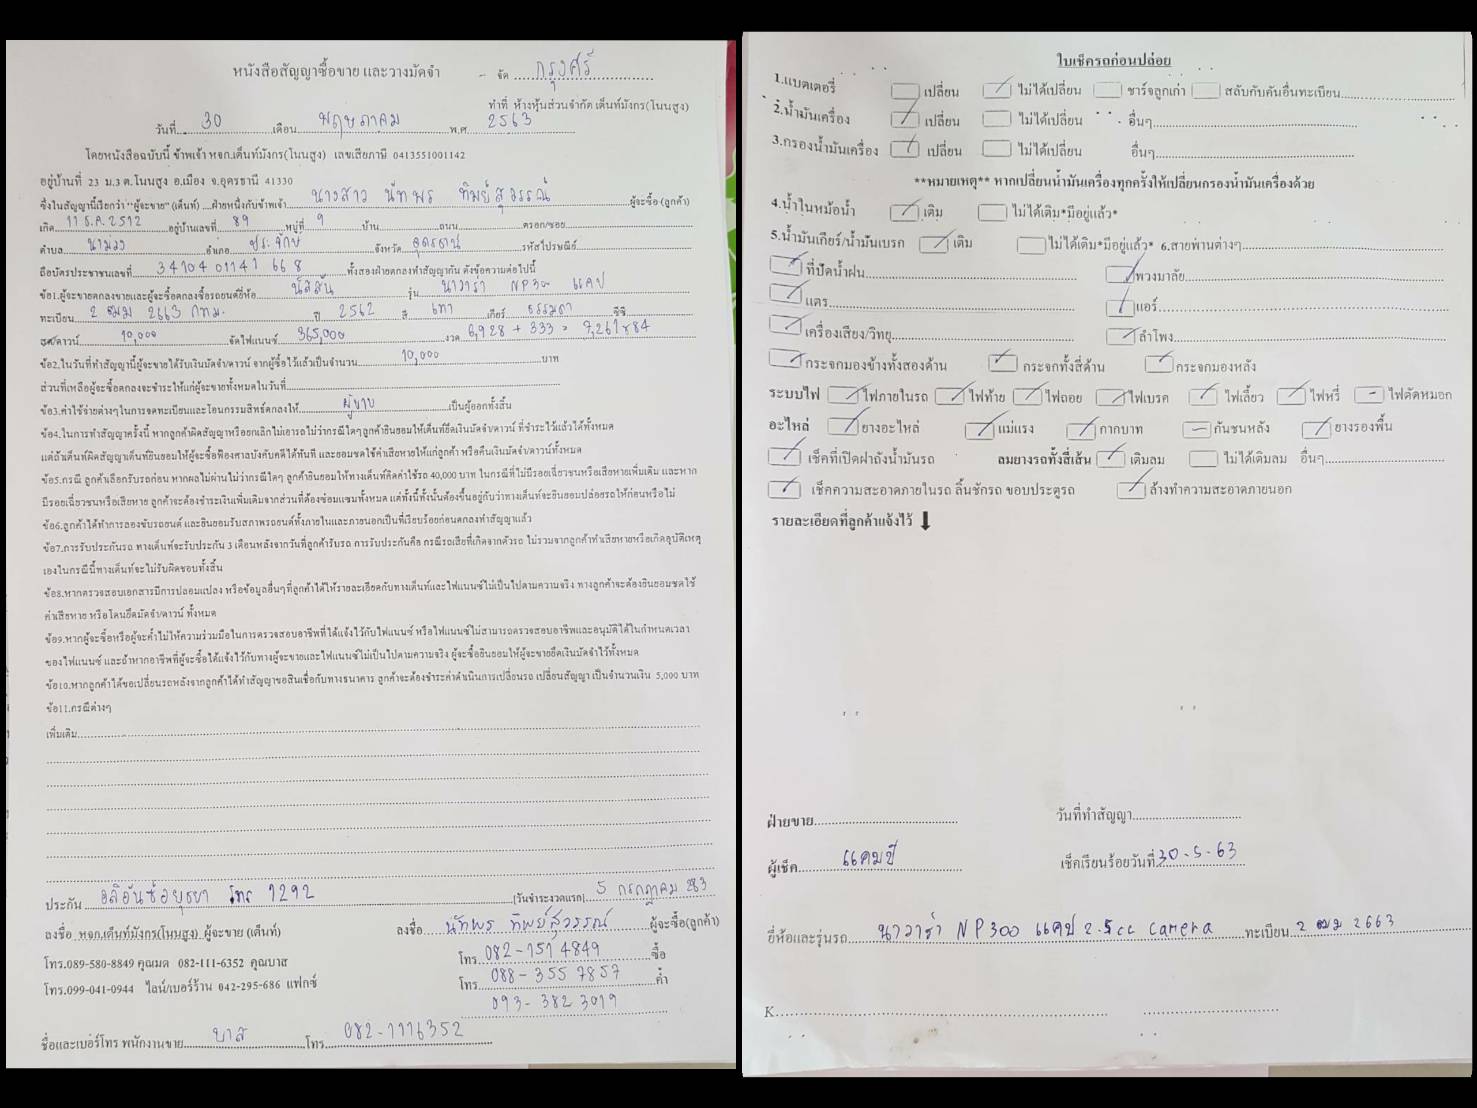 หนังสือสัญญาซื้อขาย และวางมัดจำ - จัด กรุงศรี
ทำที่ ห้างหุ้นส่วนจำกัด เต็นท์มังกร(โนนสูง)
วันที่ 30 เดือน พฤษภาคม พ.ศ. 2563
โดยหนังสือฉบับนี้ ข้าพเจ้า หจก.เต็นท์มังกร(โนนสูง) เลขเสียภาษี 0413551001142
อยู่บ้านที่ 23 ม.3 ต.โนนสูง อ.เมือง จ.อุดรธานี 41330
ซึ่งในสัญญานี้เรียกว่า "ผู้จะขาย" (เต็นท์) ....ฝ่ายหนึ่งกับข้าพเจ้า นางสาว นัทพร ทิพย์สุวรรณ์ ผู้จะซื้อ (ลูกค้า)
เกิด 11 ธ.ค. 2512 อยู่บ้านเลขที่ 89 หมู่ที่ 9 บ้าน ถนน ตรอก/ซอย
ตำบล นาม่วง อำเภอ ประจักษ์ จังหวัด อุดรธานี รหัสไปรษณีย์
ถือบัตรประชาชนเลขที่ 34104 01141 668 ทั้งสองฝ่ายตกลงทำสัญญากัน ดังข้อความต่อไปนี้
ข้อ1.ผู้จะขายตกลงขายและผู้จะซื้อตกลงซื้อรถยนต์ยี่ห้อ นิสสัน รุ่น นาวาร่า NP300 แคป
ทะเบียน 2 ฒม 2663 กทม. ปี 2562 สี เทา เกียร์ ธรรมดา ซีซี
สด/ดาวน์ 10,000 จัดไฟแนนซ์ 365,000 งวด 6,928 + 333 = 7,261x84
ข้อ2.ในวันที่ทำสัญญานี้ผู้จะขายได้รับเงินมัดจำ/ดาวน์ จากผู้ซื้อไว้แล้วเป็นจำนวน 10,000 บาท
ส่วนที่เหลือผู้จะซื้อตกลงจะชำระให้แก่ผู้จะขายทั้งหมดในวันที่
ข้อ3.ค่าใช้จ่ายต่างๆในการจดทะเบียนและโอนกรรมสิทธิ์ตกลงให้ ผู้ขาย เป็นผู้ออกทั้งสิ้น
ข้อ4.ในการทำสัญญาครั้งนี้ หากลูกค้าผิดสัญญาหรือยกเลิกไม่เอารถไม่ว่ากรณีใดๆลูกค้ายินยอมให้เต็นท์ยึดเงินมัดจำ/ดาวน์ ที่ชำระไว้แล้วได้ทั้งหมด
แต่ถ้าเต็นท์ผิดสัญญาเต็นท์ยินยอมให้ผู้จะซื้อฟ้องศาลบังคับคดีได้ทันที และยอมชดใช้ค่าเสียหายให้แก่ลูกค้า หรือคืนเงินมัดจำ/ดาวน์ทั้งหมด
ข้อ5.กรณี ลูกค้าเลือกรับรถก่อน หากผลไม่ผ่านไม่ว่ากรณีใดๆ ลูกค้ายินยอมให้ทางเต็นท์คิดค่าใช้รถ 40,000 บาท ในกรณีที่ไม่มีรอยเฉี่ยวชนหรือเสียหายเพิ่มเติม และหาก
มีรอยเฉี่ยวชนหรือเสียหาย ลูกค้าจะต้องชำระเงินเพิ่มเติมจากส่วนที่ต้องซ่อมแซมทั้งหมด แต่ทั้งนี้ทั้งนั้นต้องขึ้นอยู่กับว่าทางเต็นท์จะยินยอมปล่อยรถให้ก่อนหรือไม่
ข้อ6.ลูกค้าได้ทำการลองขับรถยนต์ และยินยอมรับสภาพรถยนต์ทั้งภายในและภายนอกเป็นที่เรียบร้อยก่อนตกลงทำสัญญาแล้ว
ข้อ7.การรับประกันรถ ทางเต็นท์จะรับประกัน 3 เดือนหลังจากวันที่ลูกค้ารับรถ การรับประกันคือ กรณีรถเสียที่เกิดจากตัวรถ ไม่รวมจากลูกค้าทำเสียหายหรือเกิดอุบัติเหตุ
เองในกรณีนี้ทางเต็นท์จะไม่รับผิดชอบทั้งสิ้น
ข้อ8.หากตรวจสอบเอกสารมีการปลอมแปลง หรือข้อมูลอื่นๆที่ลูกค้าได้ให้รายละเอียดกับทางเต็นท์และไฟแนนซ์ไม่เป็นไปตามความจริง ทางลูกค้าจะต้องยินยอมชดใช้
ค่าเสียหาย หรือโดนยึดมัดจำ/ดาวน์ ทั้งหมด
ข้อ9.หากผู้จะซื้อหรือผู้จะค้ำไม่ให้ความร่วมมือในการตรวจสอบอาชีพที่ได้แจ้งไว้กับไฟแนนซ์ หรือไฟแนนซ์ไม่สามารถตรวจสอบอาชีพและอนุมัติได้ในกำหนดเวลา
ของไฟแนนซ์ และถ้าหากอาชีพที่ผู้จะซื้อได้แจ้งไว้กับทางผู้จะขายและไฟแนนซ์ไม่เป็นไปตามความจริง ผู้จะซื้อยินยอมให้ผู้จะขายยึดเงินมัดจำไว้ทั้งหมด
ข้อ10.หากลูกค้าได้ขอเปลี่ยนรถหลังจากลูกค้าได้ทำสัญญาขอสินเชื่อกับทางธนาคาร ลูกค้าจะต้องชำระค่าดำเนินการเปลี่ยนรถ เปลี่ยนสัญญา เป็นจำนวนเงิน 5,000 บาท
ข้อ11.กรณีต่างๆ
เพิ่มเติม
ประกัน อลิอันซ์อยุธยา โทร 1292 (วันชำระงวดแรก) 5 กรกฎาคม
ลงชื่อ หจก.เต็นท์มังกร(โนนสูง) ผู้จะขาย (เต็นท์) ลงชื่อ นัทพร ทิพย์สุวรรณ์ ผู้จะซื้อ(ลูกค้า)
โทร.089-580-8849 คุณมด 082-111-6352 คุณบาส โทร. 082-151 4849 ซื้อ
โทร.099-041-0944 ไลน์/เบอร์ร้าน 042-295-686 แฟกซ์ โทร. 088-355 7857 ค้ำ
093-382 3019
ชื่อและเบอร์โทร พนักงานขาย บาส โทร. 082-1116352
ใบเช็ครถก่อนปล่อย
1.แบตเตอรี่ เปลี่ยน ไม่ได้เปลี่ยน ชาร์จลูกเก่า สลับกับคันอื่นทะเบียน
2.น้ำมันเครื่อง เปลี่ยน ไม่ได้เปลี่ยน อื่นๆ
3.กรองน้ำมันเครื่อง เปลี่ยน ไม่ได้เปลี่ยน อื่นๆ
**หมายเหตุ** หากเปลี่ยนน้ำมันเครื่องทุกครั้งให้เปลี่ยนกรองน้ำมันเครื่องด้วย
4.น้ำในหม้อน้ำ เติม ไม่ได้เติม*มีอยู่แล้ว*
5.น้ำมันเกียร์/น้ำมันเบรก เติม ไม่ได้เติม*มีอยู่แล้ว* 6.สายพานต่างๆ
ที่ปัดน้ำฝน พวงมาลัย
แตร แอร์
เครื่องเสียง/วิทยุ ลำโพง
กระจกมองข้างทั้งสองด้าน กระจกทั้งสี่ด้าน กระจกมองหลัง
ระบบไฟ ไฟภายในรถ ไฟท้าย ไฟถอย ไฟเบรค ไฟเลี้ยว ไฟหรี่ ไฟตัดหมอก
อะไหล่ ยางอะไหล่ แม่แรง กากบาท กันชนหลัง ยางรองพื้น
เช็คที่เปิดฝาถังน้ำมันรถ ลมยางรถทั้งสี่เส้น เติมลม ไม่ได้เติมลม อื่นๆ
เช็คความสะอาดภายในรถ ลิ้นชักรถ ขอบประตูรถ ล้างทำความสะอาดภายนอก
รายละเอียดที่ลูกค้าแจ้งไว้
ฝ่ายขาย วันที่ทำสัญญา
ผู้เช็ค แคมป์ เช็คเรียบร้อยวันที่ 30-5-63
ยี่ห้อและรุ่นรถ นาวาร่า NP300 แคป 2.5cc camera ทะเบียน 2 ฒม 2663
K